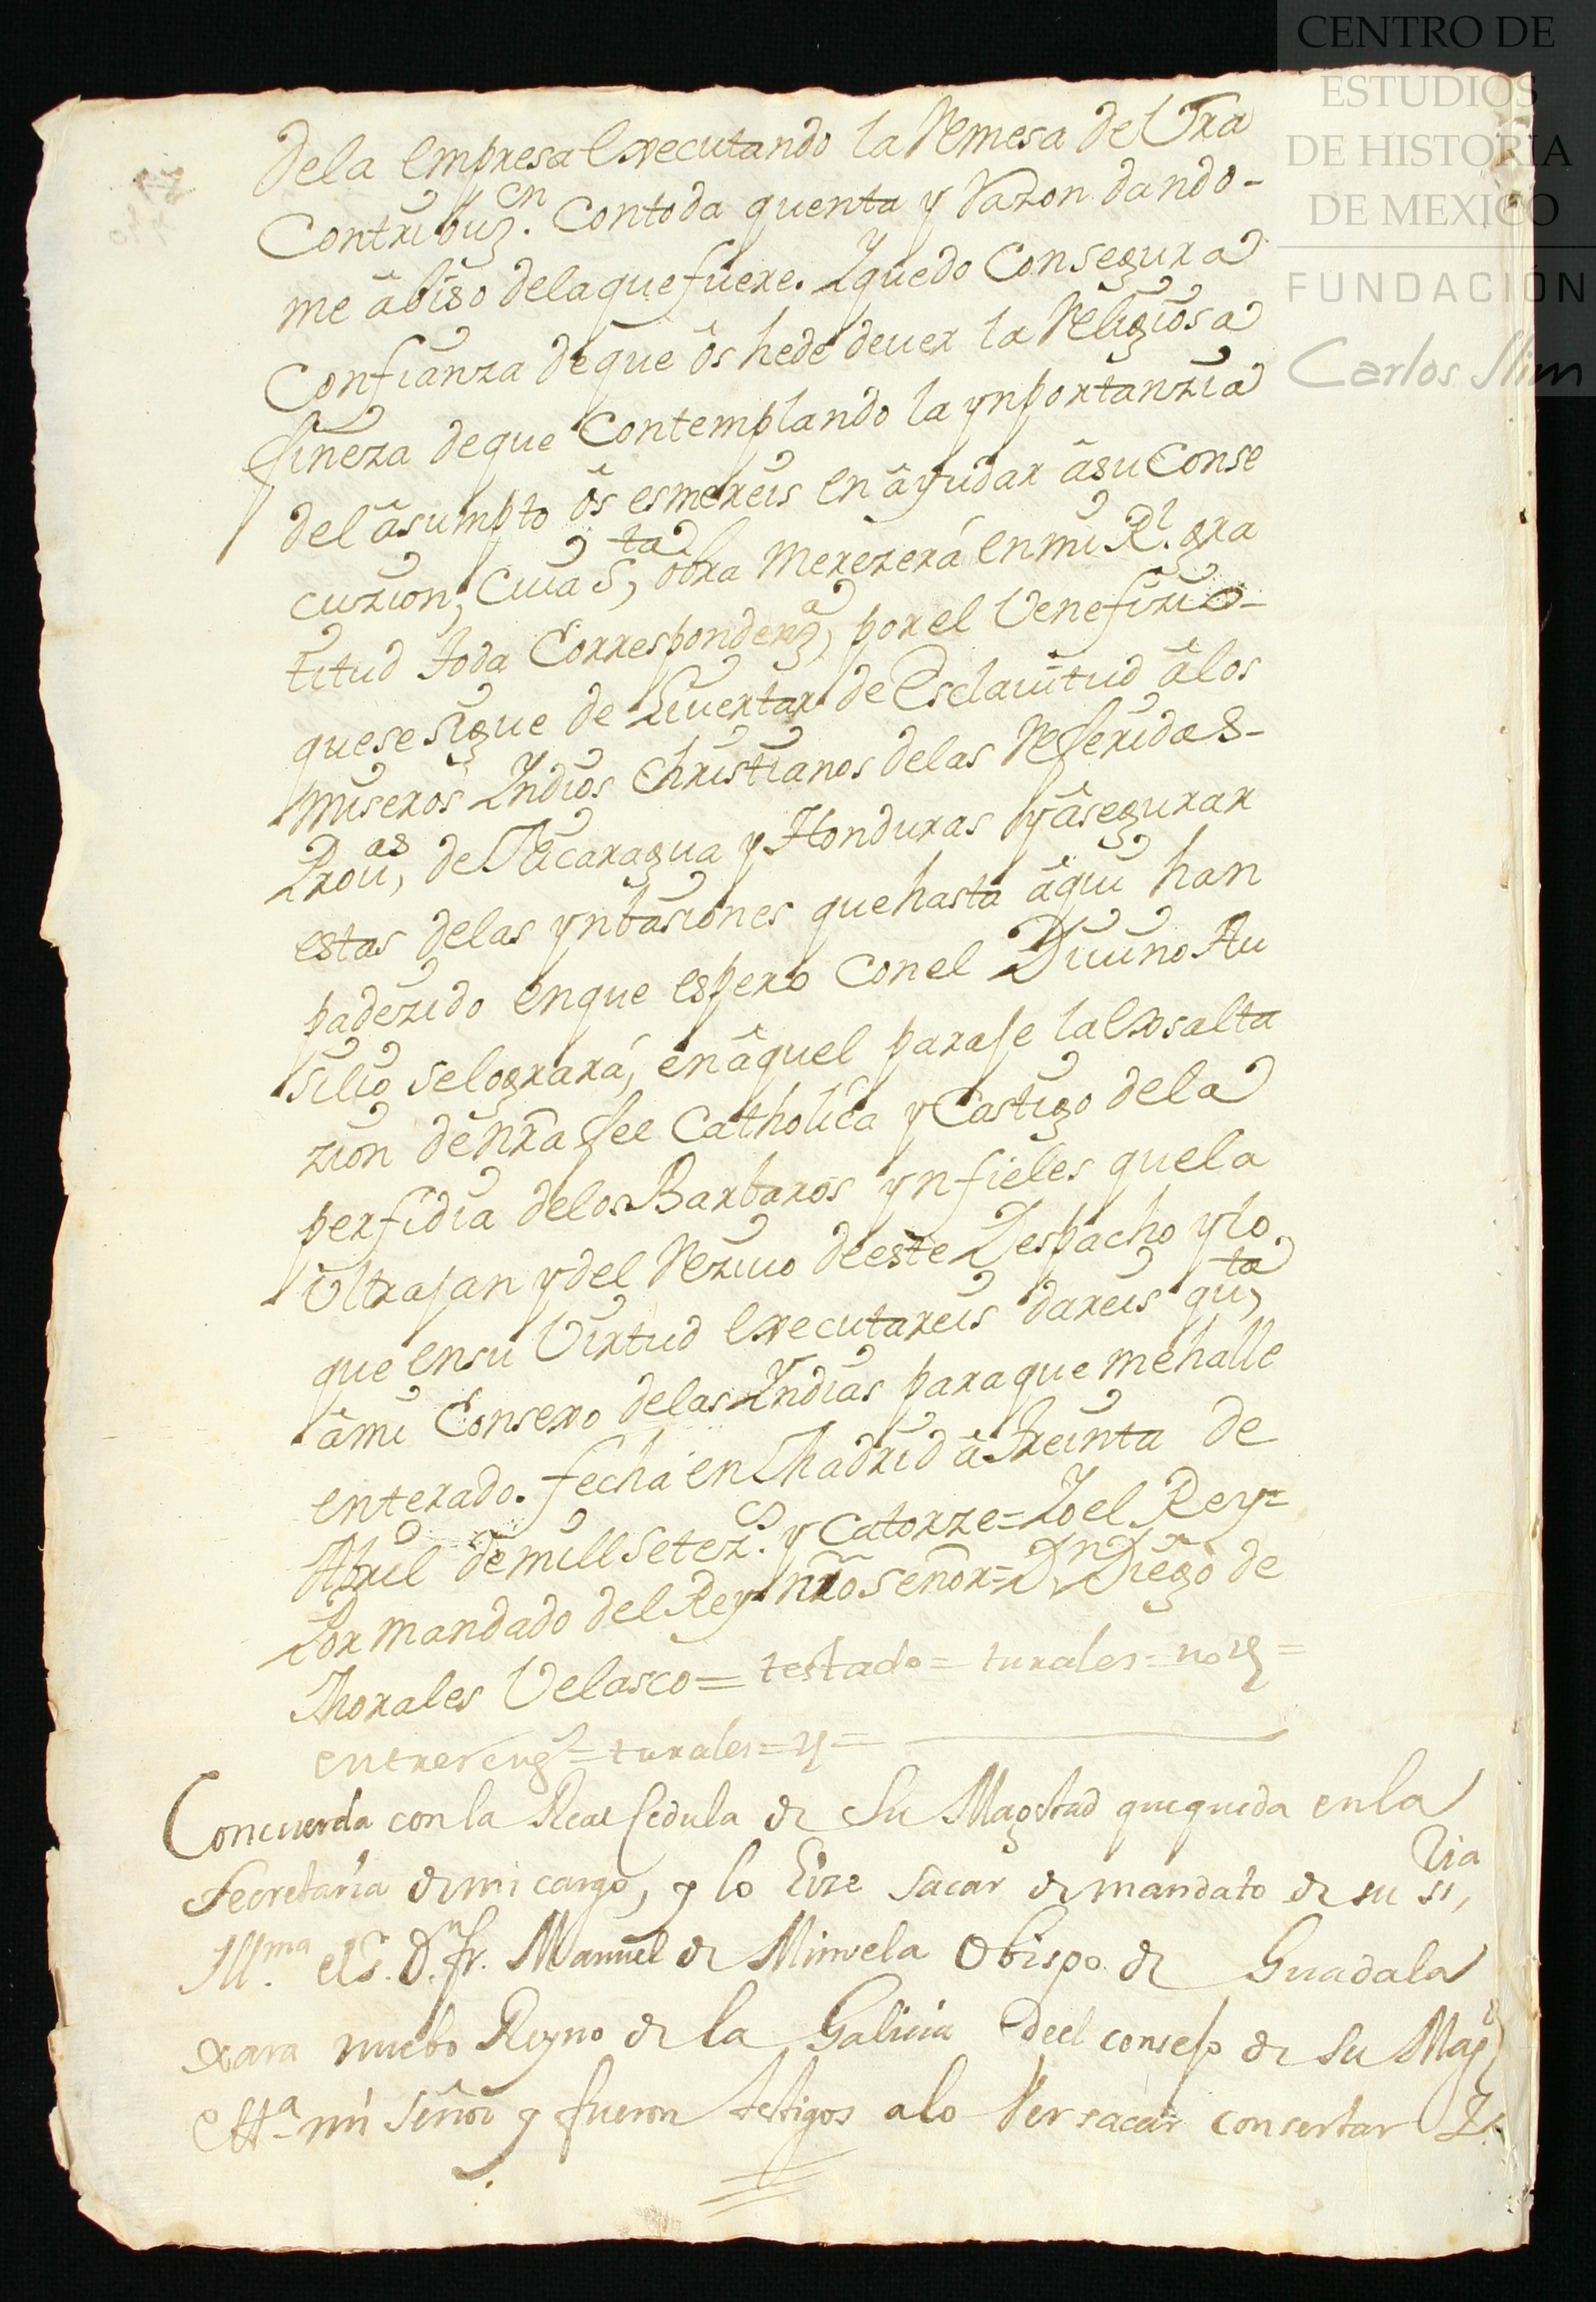 CENTRO DE
ESTUDIOS
DE HISTORIA
DE MEXICO
FUNDACIÓN
Carlos Slim
dela empresa executando la Remesa de Vra
Contribuz.on Contoda quenta y Razon dando-
me âbiso delaquefuere. Yquedo Consegura
Confianza deque ôs hede dever la Religiosa
fineza deque Contemplando la ynportanzia
del âsumpto ôs esmereis en âyudar âsu Conse
cuzion, Cuia S,ta obra Merezerá enmi Rl. gra
titud toda Correspondenz,a por el Venefizio-
quese sigue de Livertar de Esclauitud âlos
miseros Yndios Christianos delas Referidas-
Prou,as de Nicaragua y Honduras yâsegurar
estas delas ynbasiones quehasta âqui han
padezido enque espero Conel Diuino Au
silio selogrará, en âquel paraje la Exsalta
zion denra fee Catholica y Castigo dela
perfidia delos Barbaros ynfieles quela
Vltrajan ydel Rezivo deeste Despacho ylo
que ensu Virtud executareis dareis qu,ta
âmi Consexo delas Yndias paraque mehalle
enterado. fecha en Madrid â treinta de
Abril de mill setez.s y Catorze= Yo el Rey=
Por mandado del Rey nro Señor= Dn Diego de
Morales Velasco= testado= turales= no v=
entrereng.s= turales= v=
Concuerda con la Real Cedula de Su Magestad que queda en la
Secretaria de mi cargo, y lo hize sacar de mandato de su si,ria
Ill.ma el S.r D.n fr. Manuel de Mimvela Obispo de Guadala
xara nuebo Reyno de la Galicia deel consejo de Su Mag.d
ett.a mi señor y fueron testigos alo Ver sacar consertar